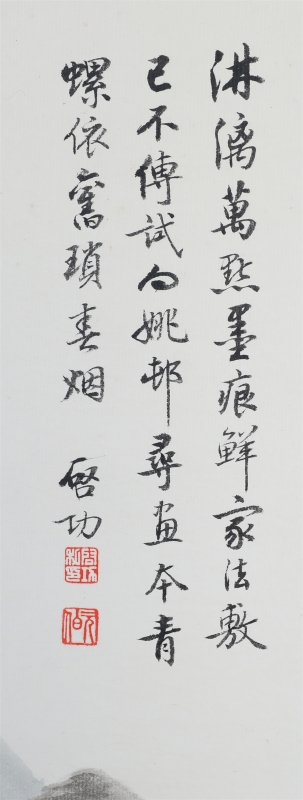 淋漓萬點墨痕鮮家法敷
已不傳試向姚邨尋畫本青
螺依舊瑣春烟
啓功
啓功私印
元伯